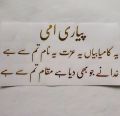 پیاری امی
یہ کامیابیاں یہ عزت یہ نام تم سے ہے
خدا نے جو بھی دیا ہے مقام تم سے ہے